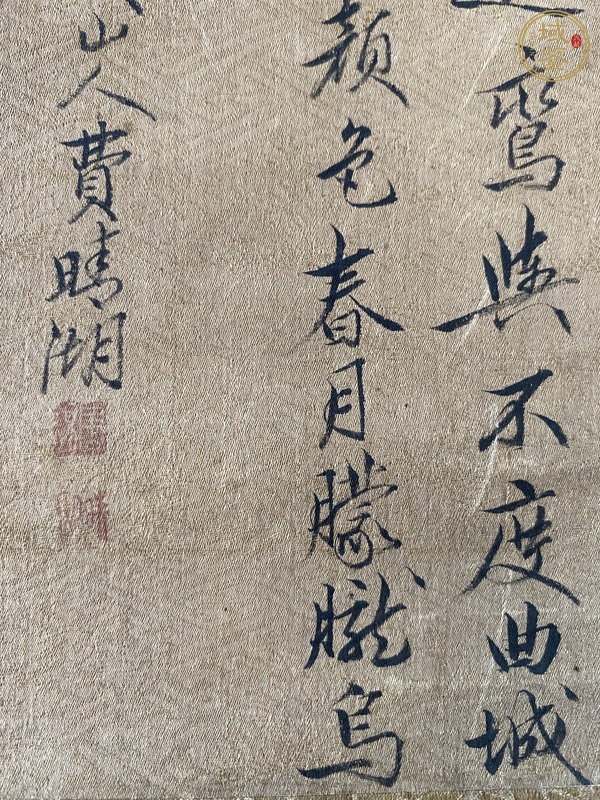 鸞與不度曲城
顏色春月朦朧烏
山人費晴湖